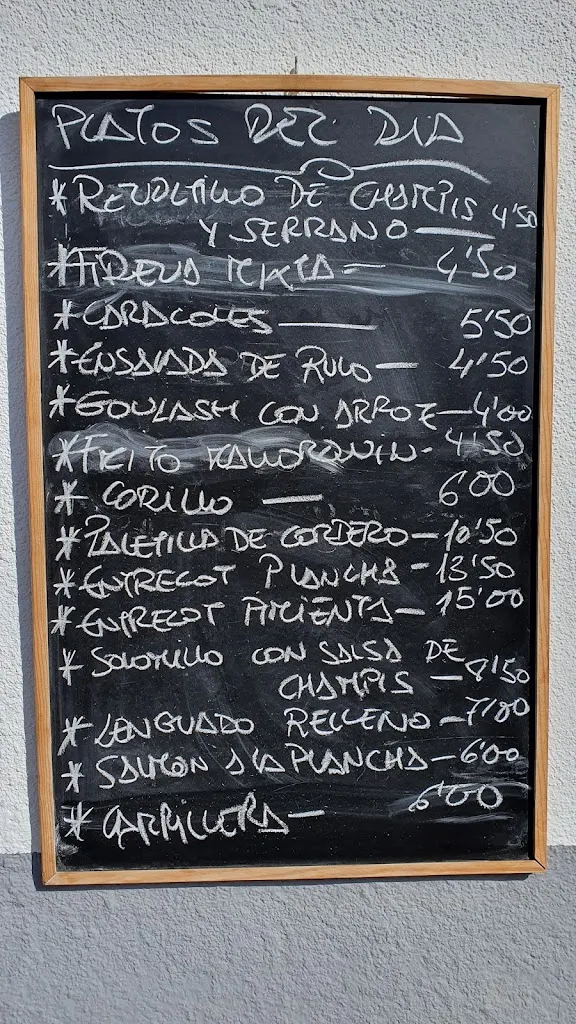 PLATOS DEL DIA
*REVOLTILLO DE CHAMPIS 4'50
Y SERRANO —
* MIXTA — 4'50
*CARACOLES — 5'50
*ENSALADA DE RULO — 4'50
*GOULASH CON ARROZ — 4'00
*FRITO MALLORQUIN - 4'50
* — 6'00
*PALETILLA DE CORDERO — 10'50
*ENTRECOT PLANCHA - 13'50
*ENTRECOT PIMIENTA — 15'00
*SOLOMILLO CON SALSA DE
CHAMPIS — 8'50
*LENGUADO RELLENO — 7'00
*SALMON A LA PLANCHA — 6'00
*CARRILLERA — 6'00